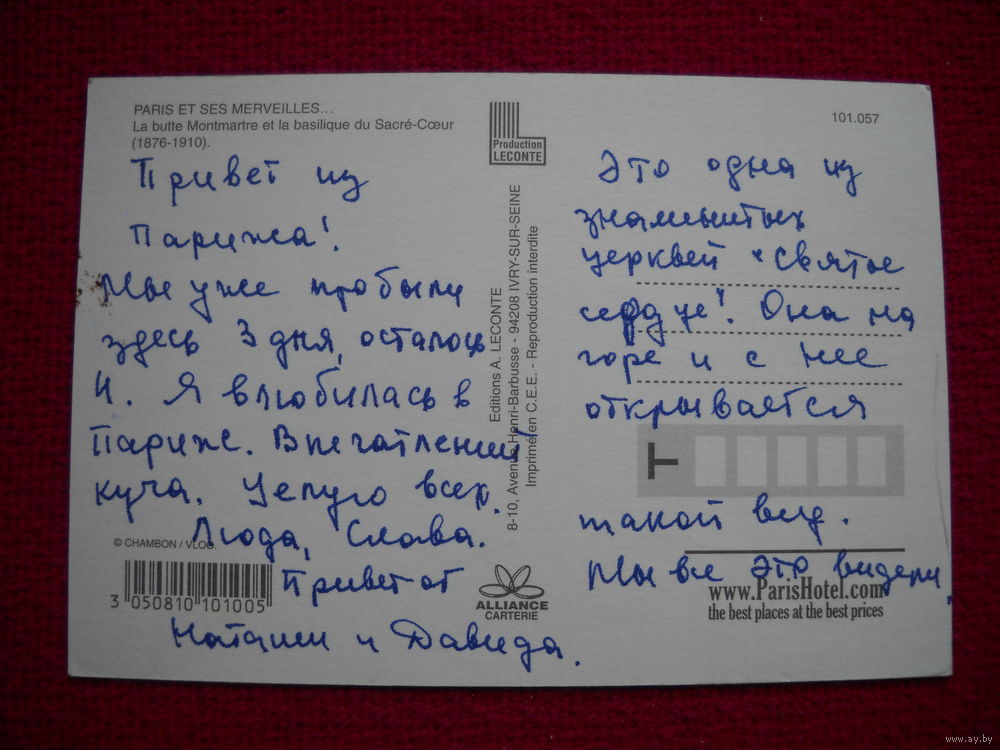 PARIS ET SES MERVEILLES...
La butte Montmartre et la basilique du Sacré-Cœur
(1876-1910).
Привет из
Парижа!
Мы уже пробыли
здесь 3 дня, осталось
4. Я влюбилась в
Париж. Впечатлений
куча. Целую всех.
Люда, Слава.
Привет от
Наташи и Давида.
© CHAMBON / VLOO.
3 050810 101005
Production
LECONTE
Editions A. LECONTE
8-10, Avenue Henri-Barbusse - 94208 IVRY-SUR-SEINE
Imprimé en C.E.E. - Reproduction interdite
ALLIANCE
CARTERIE
101.057
Это одна из
знаменитых
церквей "Святое
сердце". Она на
горе и с нее
открывается
T
такой вид.
Мы все это видели.
www.ParisHotel.com
the best places at the best prices
www.ay.by